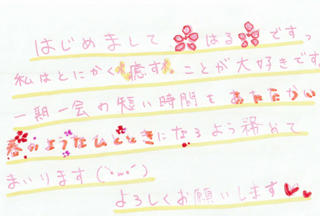 はじめまして はる ですっ
私はとにかく癒すことが大好きです
一期一会の憩い時間をあたたかい
春のようなひとときになるよう務めて
まいります(´･ω･`)
よろしくお願いします